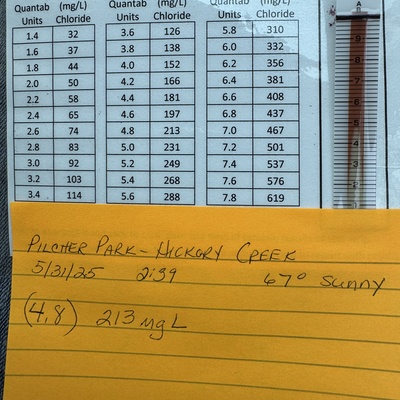 Quantab Units (mg/L) Chloride Quantab Units (mg/L) Chloride Quantab Units (mg/L) Chloride
1.4 32 3.6 126 5.8 310
1.6 37 3.8 138 6.0 332
1.8 44 4.0 152 6.2 356
2.0 50 4.2 166 6.4 381
2.2 58 4.4 181 6.6 408
2.4 65 4.6 197 6.8 437
2.6 74 4.8 213 7.0 467
2.8 83 5.0 231 7.2 501
3.0 92 5.2 249 7.4 537
3.2 103 5.4 268 7.6 576
3.4 114 5.6 288 7.8 619
9
8
7
6
5
4
3
2
PILCHER PARK - HICKORY CREEK
5/31/25 2:39 67° sunny
(4.8) 213 mg L